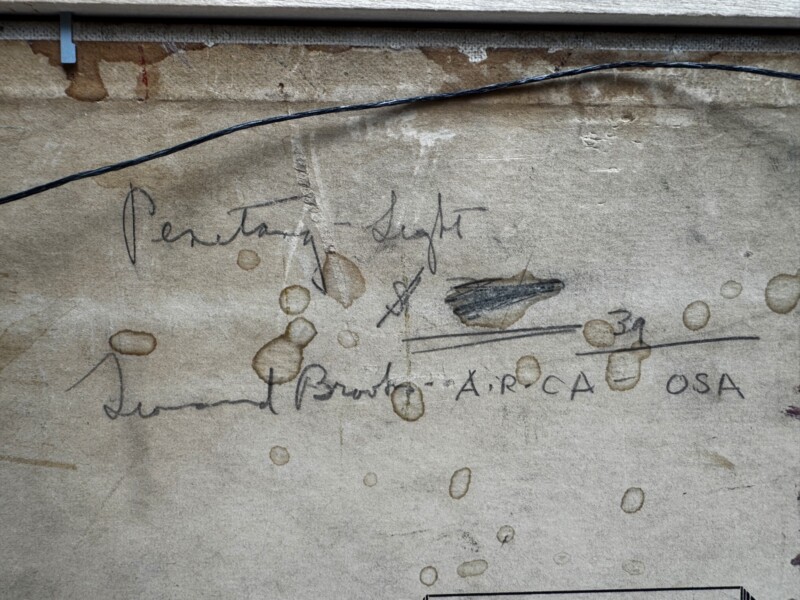 Penetang - Light
$
39
Leonard Brooks - A.R.CA - OSA